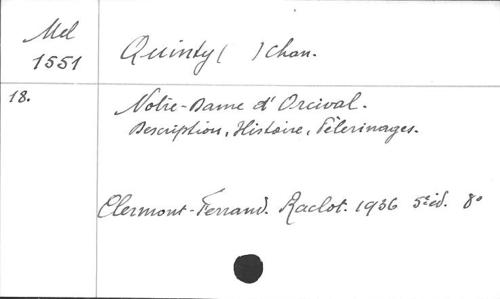 Mel
1551
Quinty ( ) Chan.
18.
Notre-Dame d'Orcival.
Description, Histoire, Pèlerinages.
Clermont-Ferrand. Raclot. 1936 5e éd. 8°